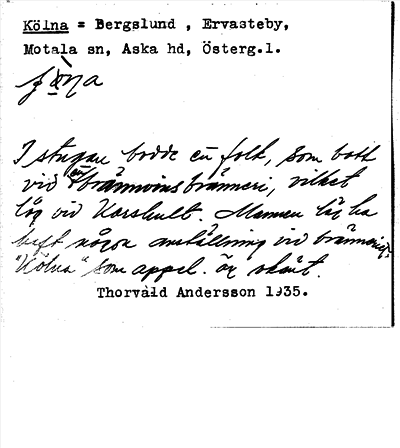 Kölna = Bergslund , Ervasteby,
Motala sn, Aska hd, Österg.l.
I stugan bodde en folk, som bott
vid ett brännvinsbränneri, vilket
låg vid Karshult. Mannen lär ha
haft någon anställning vid bränneriet.
"Kölna" som appel. är okänt.
Thorvald Andersson 1935.